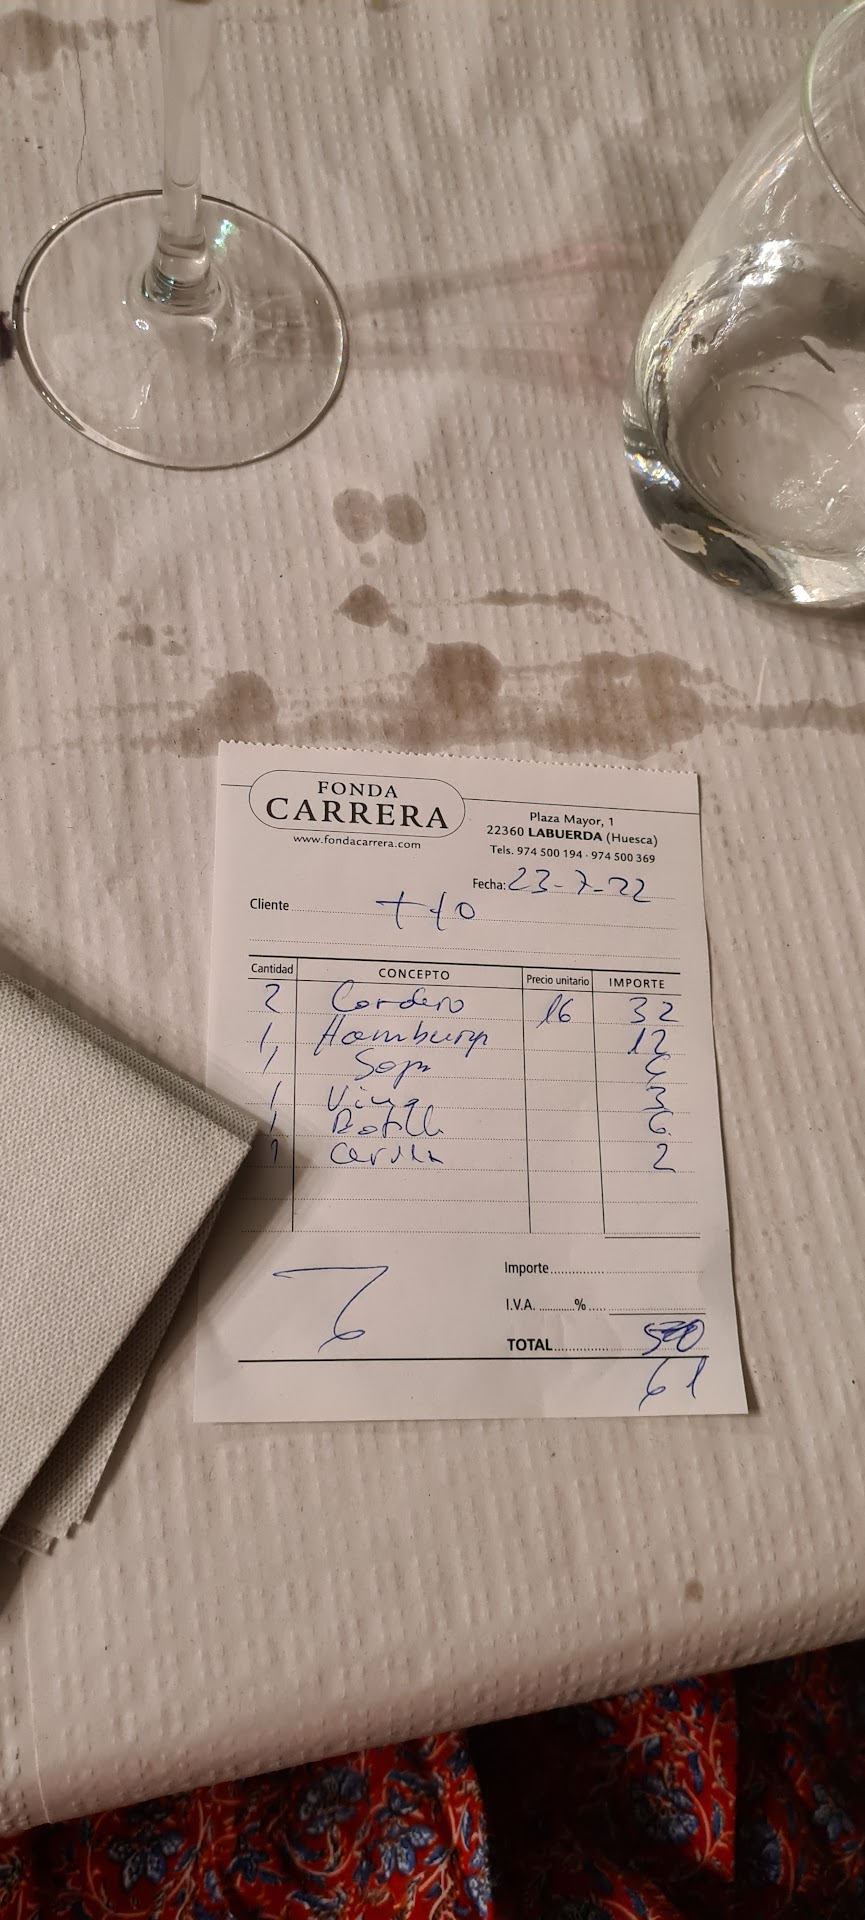 FONDA
CARRERA
www.fondacarrera.com
Plaza Mayor, 1
22360 LABUERDA (Huesca)
Tels. 974 500 194 - 974 500 369
Fecha: 23-7-22
Cliente
Cantidad CONCEPTO Precio unitario IMPORTE
2 Cordero 16 32
1 Hamburg 12
1 Sopa
1 Vino 3
1 Botell 6
1 2
Importe
I.V.A. % 
TOTAL
61